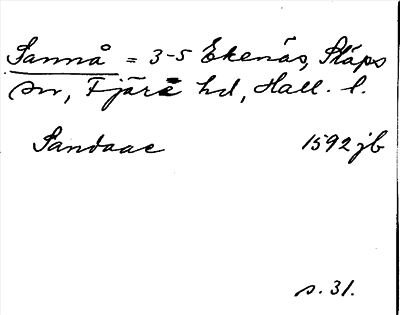 Sannå = 3-5 Ekenäs, Släps
sn, Fjäre hd, Hall. l.
Sandaae 1592 jb
s. 31.